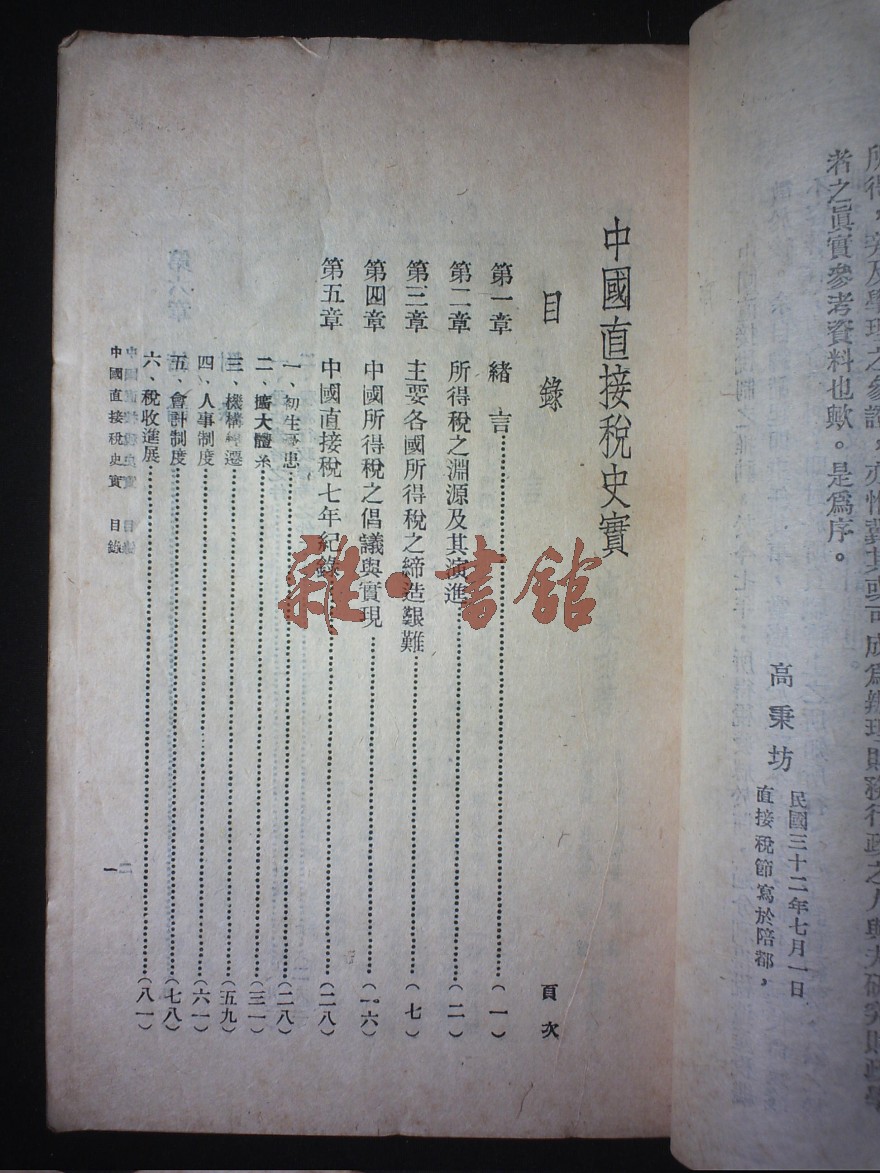 者之眞實參考資料也歟。是爲序。
高秉坊
民國三十二年七月一日,
直接稅節寫於陪都,
中國直接稅史實
目錄 頁次
第一章 緒言 (一)
第二章 所得稅之淵源及其演進 (二)
第三章 主要各國所得稅之締造艱難 (七)
第四章 中國所得稅之倡議與實現 (一六)
第五章 中國直接稅七年紀錄 (二八)
一、初生 患 (二八)
二、擴大體系 (三一)
三、機構 遷 (五九)
四、人事制度 (六一)
五、會計制度 (七八)
六、稅收進展 (八一)
中國直接稅史實 目錄
一
雜·書館